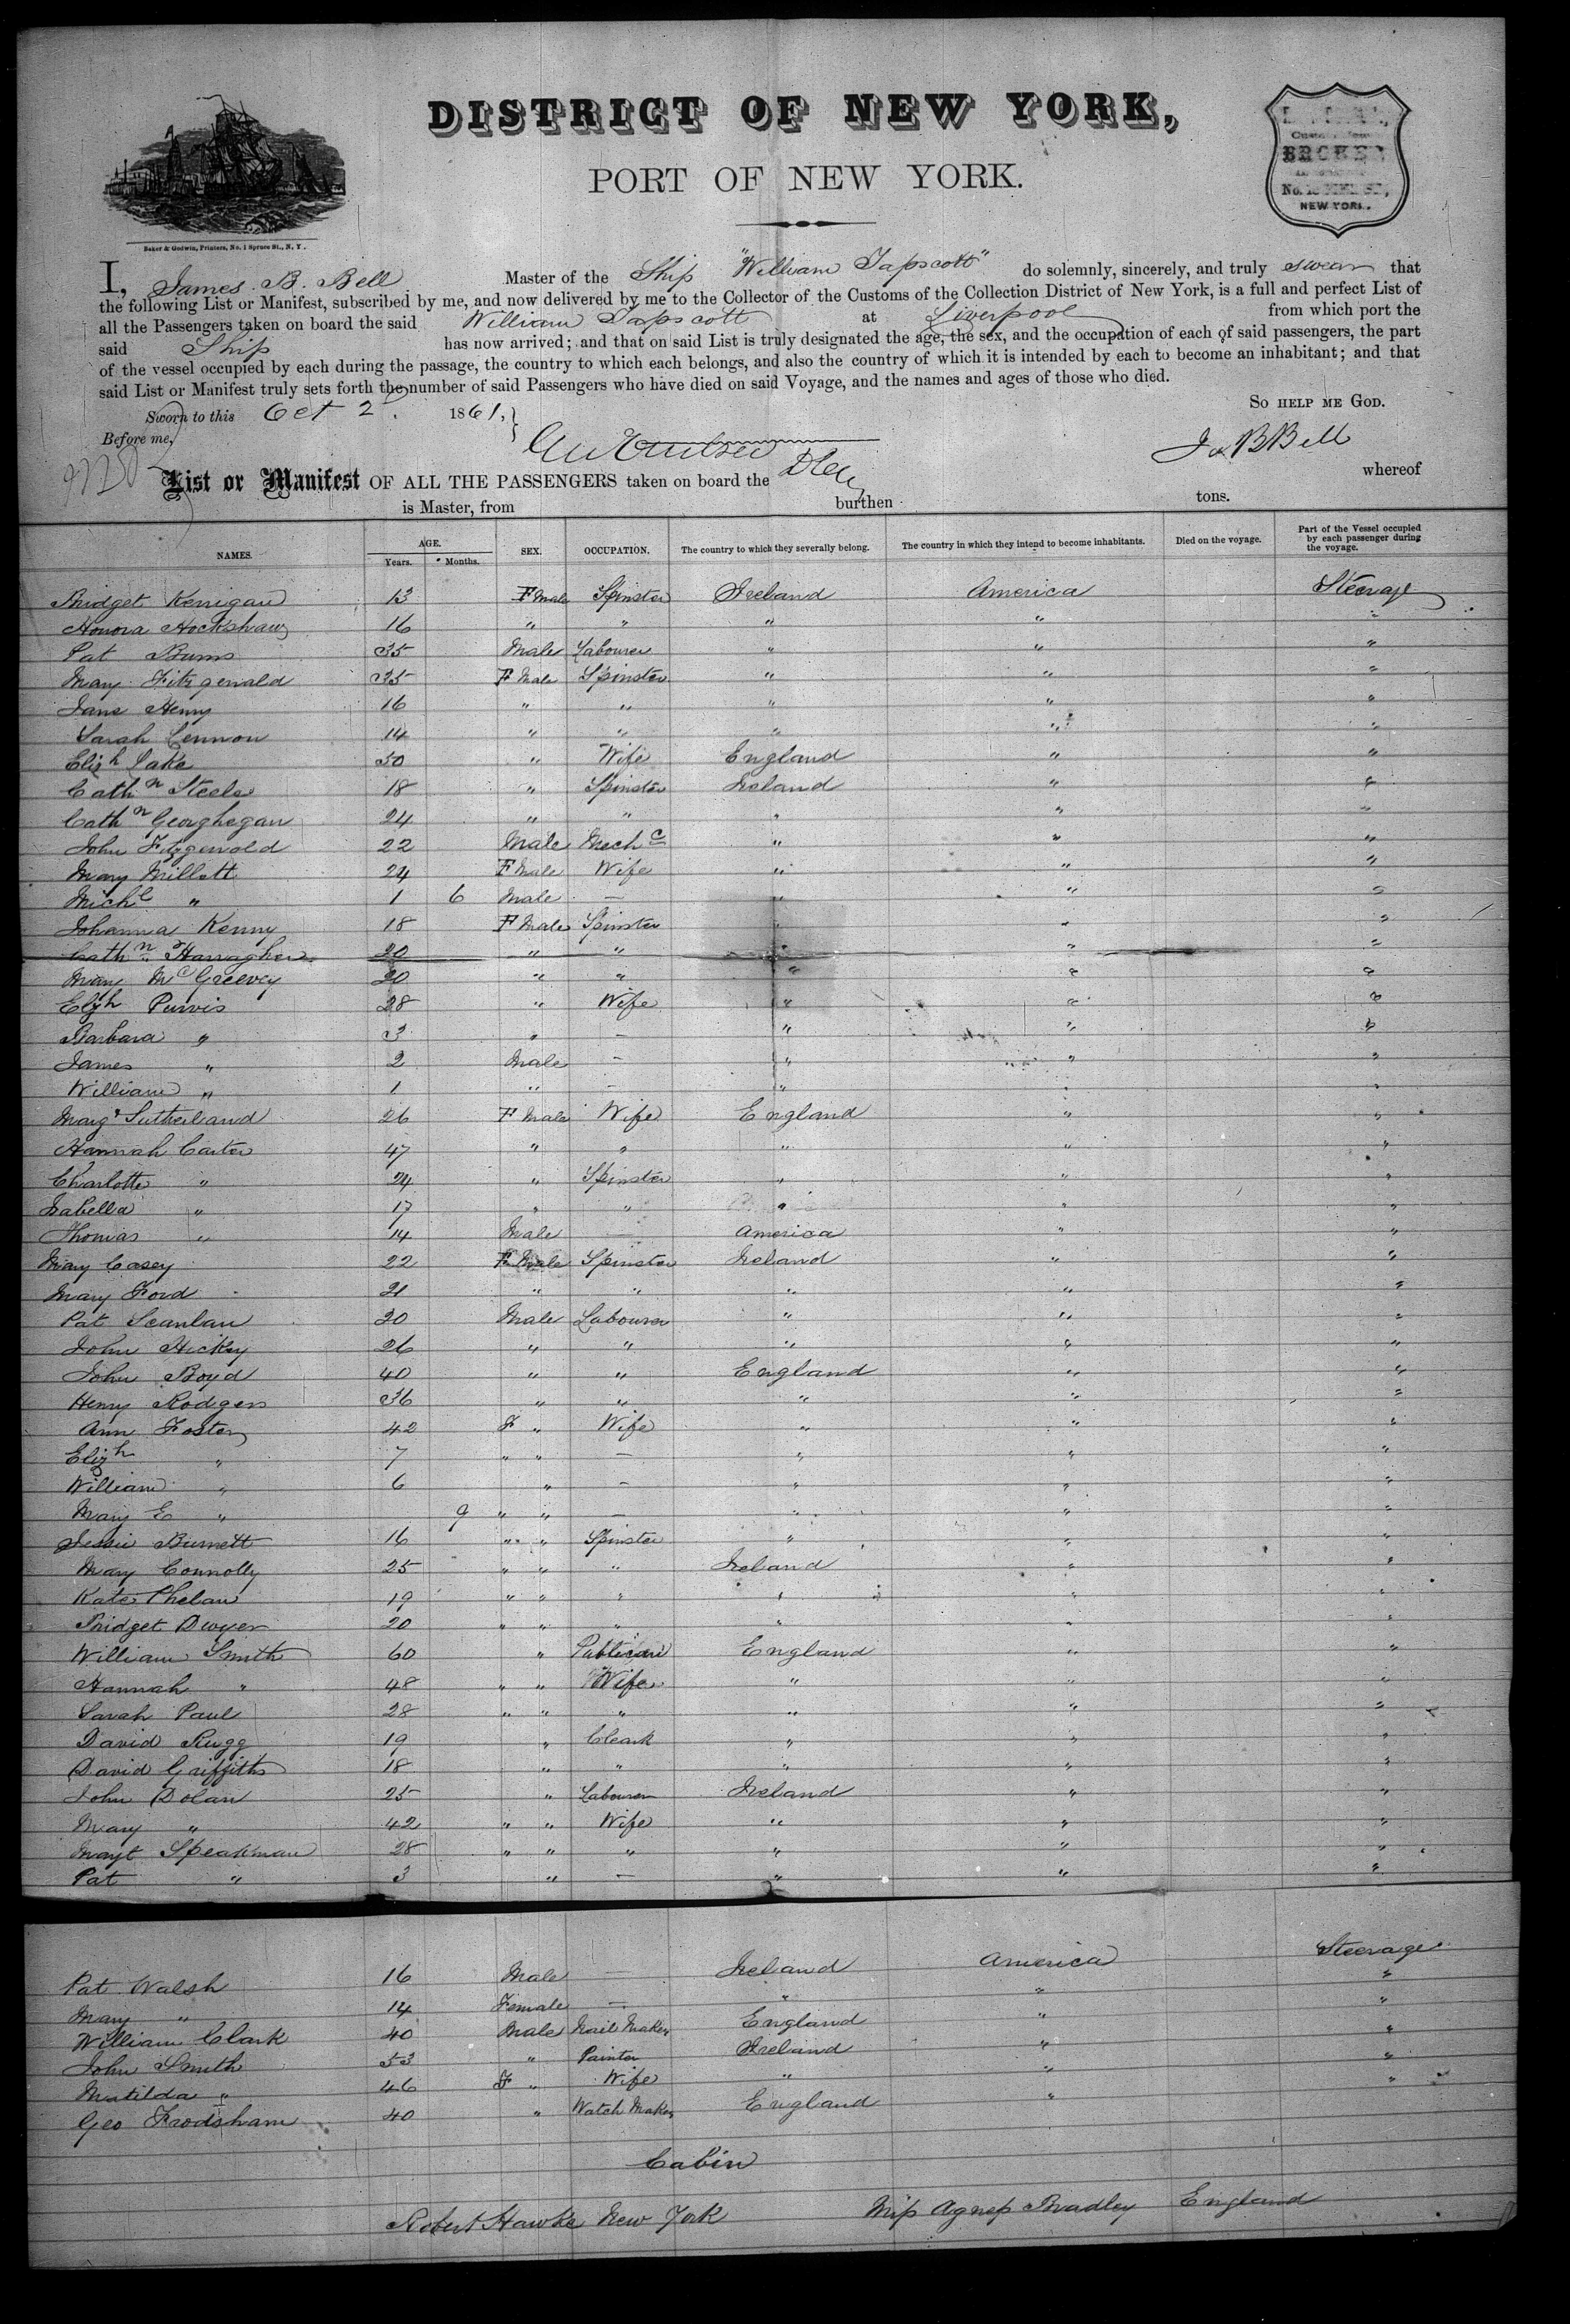 DISTRICT OF NEW YORK,
PORT OF NEW YORK.
BROKER
NEW YORK.
Baker & Godwin, Printers, No. 1 Spruce St., N. Y.
I, James B. Bell Master of the Ship "William Tapscott" do solemnly, sincerely, and truly swear that
the following List or Manifest, subscribed by me, and now delivered by me to the Collector of the Customs of the Collection District of New York, is a full and perfect List of
all the Passengers taken on board the said William Tapscott at Liverpool from which port the
said Ship has now arrived; and that on said List is truly designated the age, the sex, and the occupation of each of said passengers, the part
of the vessel occupied by each during the passage, the country to which each belongs, and also the country of which it is intended by each to become an inhabitant; and that
said List or Manifest truly sets forth the number of said Passengers who have died on said Voyage, and the names and ages of those who died.
So help me God.
Sworn to this Oct 2. 1861,
Before me,
Jas B Bell
List or Manifest OF ALL THE PASSENGERS taken on board the whereof
is Master, from burthen tons.
NAMES. AGE. Years. Months. SEX. OCCUPATION. The country to which they severally belong. The country in which they intend to become inhabitants. Died on the voyage. Part of the Vessel occupied by each passenger during the voyage.
Bridget Kerrigan 13 F Male Spinster Ireland America Steerage
Honora Hockshaw 16 " " " " "
Pat Burns 35 Male Labourer " " "
Mary Fitzgerald 35 F Male Spinster " " "
Jane Henry 16 " " " " "
Sarah Lennon 14 " " " " "
Elizh Lake 50 " Wife England " "
Cathn Steele 18 " Spinster Ireland " "
Cathn Georghegan 24 " " " " "
John Fitzgerald 22 Male Mechc " " "
Mary Millett 24 F Male Wife " " "
Michl " 1 6 Male — " " "
Johanna Kenny 18 F Male Spinster " " "
Cathn Harragher 20 " " " " "
Mary McGreevey 20 " " " " "
Elizh Purvis 28 " Wife " " "
Barbara " 3 " — " " "
James " 2 Male — " " "
William " 1 " — " " "
Margt Sutherland 26 F Male Wife England " "
Hannah Carter 47 " " " " "
Charlotte " 24 " Spinster " " "
Isabella " 17 " " " " "
Thomas " 14 Male — America " "
Mary Casey 22 F Male Spinster Ireland " "
Mary Ford 21 " " " " "
Pat Scanlan 20 Male Labourer " " "
John Hickey 26 " " " " "
John Boyd 40 " " England " "
Henry Rodgers 36 " " " " "
Ann Foster 42 F " Wife " " "
Elizh " 7 " " — " " "
William " 6 " — " " "
Mary E " 9 " " — " " "
Jessie Burnett 16 " " Spinster " " "
Mary Connolly 25 " " " Ireland " "
Kate Phelan 19 " " " " " "
Bridget Dwyer 20 " " " " " "
William Smith 60 " Publican England " "
Hannah " 48 " " Wife " " "
Sarah Paul 28 " " " " " "
David Rugg 19 " Cleark " " "
David Griffiths 18 " " " " "
John Dolan 25 " Labourer Ireland " "
Mary " 42 " " Wife " " "
Mayt Speakman 28 " " " " " "
Pat " 3 " — " " "
Pat Walsh 16 Male — Ireland America Steerage
Mary " 14 Female — " " "
William Clark 40 Male Nail Maker England " "
John Smith 53 " Painter Ireland " "
Matilda " 46 F " Wife " " "
Geo Frodsham 40 " Watch Maker England " "
Cabin
Robert Hawke New York Miss Agness Bradley England